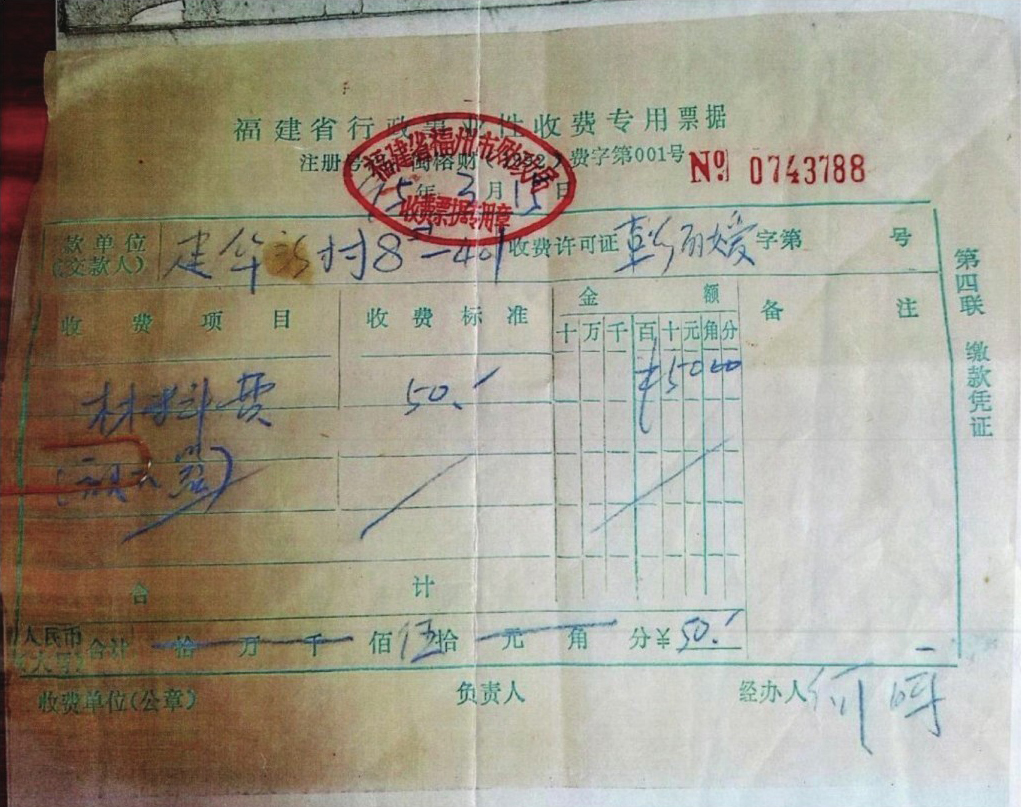 福建省行政事业性收费专用票据
注册号 闽榕财 费字第001号 № 0743788
福建省福州市财政局
收费票据专用章
95年3月15日
款单位 (交款人) 建华新村8 收费许可证 字第 号
收费项目 收费标准 金额 备注
十万千百十元角分
材料费 50. ¥5000
合计
人民币 (大写) 合计 拾万千佰伍拾元角分 ¥50.
收费单位(公章) 负责人 经办人 何
第四联 缴款凭证